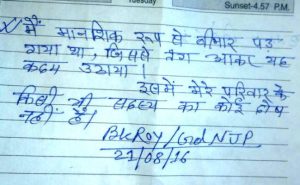 Tuesday
Sunset-4.57 P.M.
मैं मानशिक रूप से बीमार पड़
गया था, जिससे तंग आकर यह
कदम उठाया।
इसमें मेरे परिवार के
किसी भी सदस्य का कोई दोष
नहीं है।
BK Roy/Gd NJP
21/08/16